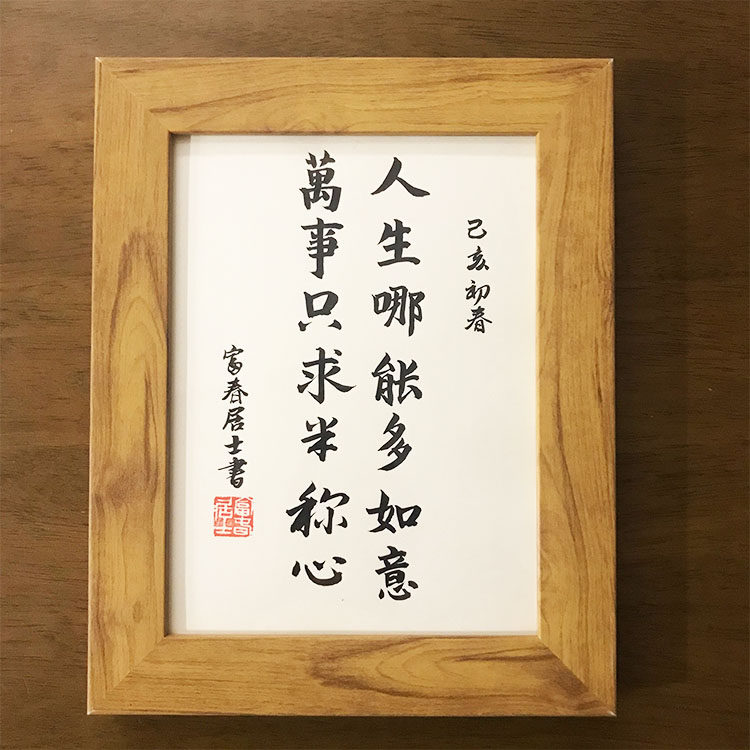 己亥初春
人生哪能多如意
萬事只求半称心
富春居士書
富春居士